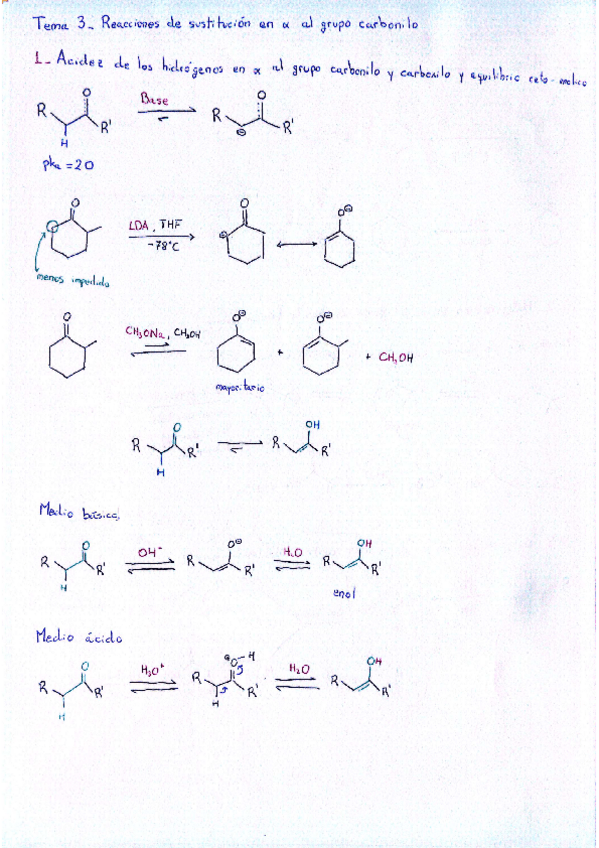 Tema 3_ Reacciones de sustitución en α al grupo carbonilo
1_ Acidez de los hidrógenos en α al grupo carbonilo y carboxilo y equilibrio ceto-enolico
O Base O
R R' R R'
H ⊖
pka = 20
O LDA, THF O O⊖
-78°C
menos impedido
O CH3ONa, CH3OH O⊖ O⊖
+ + CH3OH
mayoritario
O OH
R R' R R'
H
Medio básico,
O OH⁻ O⊖ H2O OH
R R' R R' R R'
H enol
Medio ácido
O H3O⁺ ⊕O-H H2O OH
R R' R R' R R'
H H